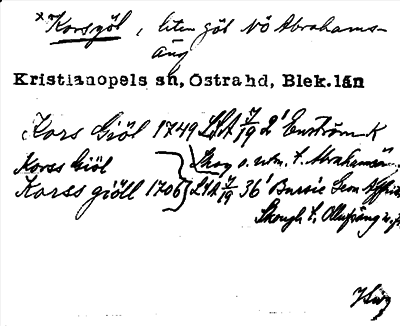 × Korsgöl, liten göl NÖ Abrahams-
äng
Kristianopels sn, Östra hd, Blek. län
Kors Giöl 1749 LSA 7/19 2' Enström K
Korss Giöl Skog o. utm. t. Abrahamsän
Korss giöll 1706 LSA 7/19 36' Bursie Gem
Skough t. Ollusäng